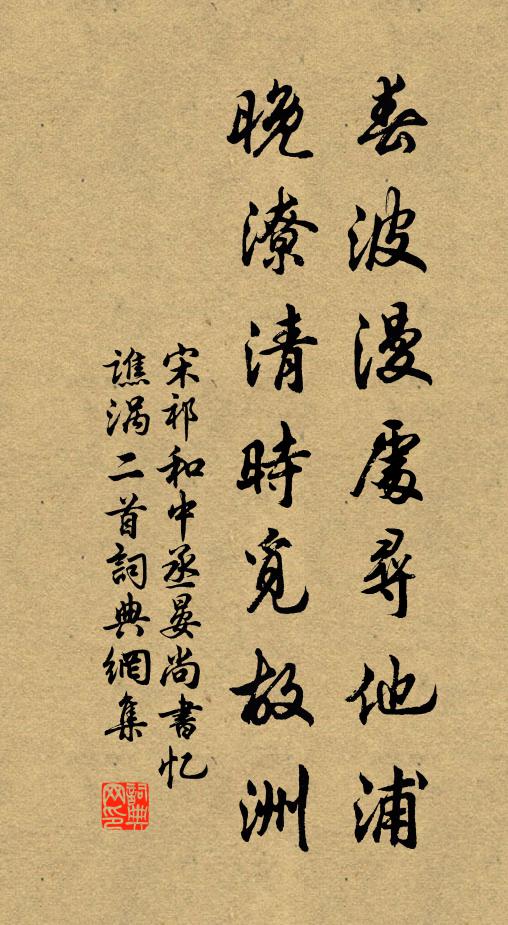 春波漫處尋他浦
晚潦清時覓故洲
宋祁和中丞晏尚書忆
譙涡二首詞典網集
詞典网印